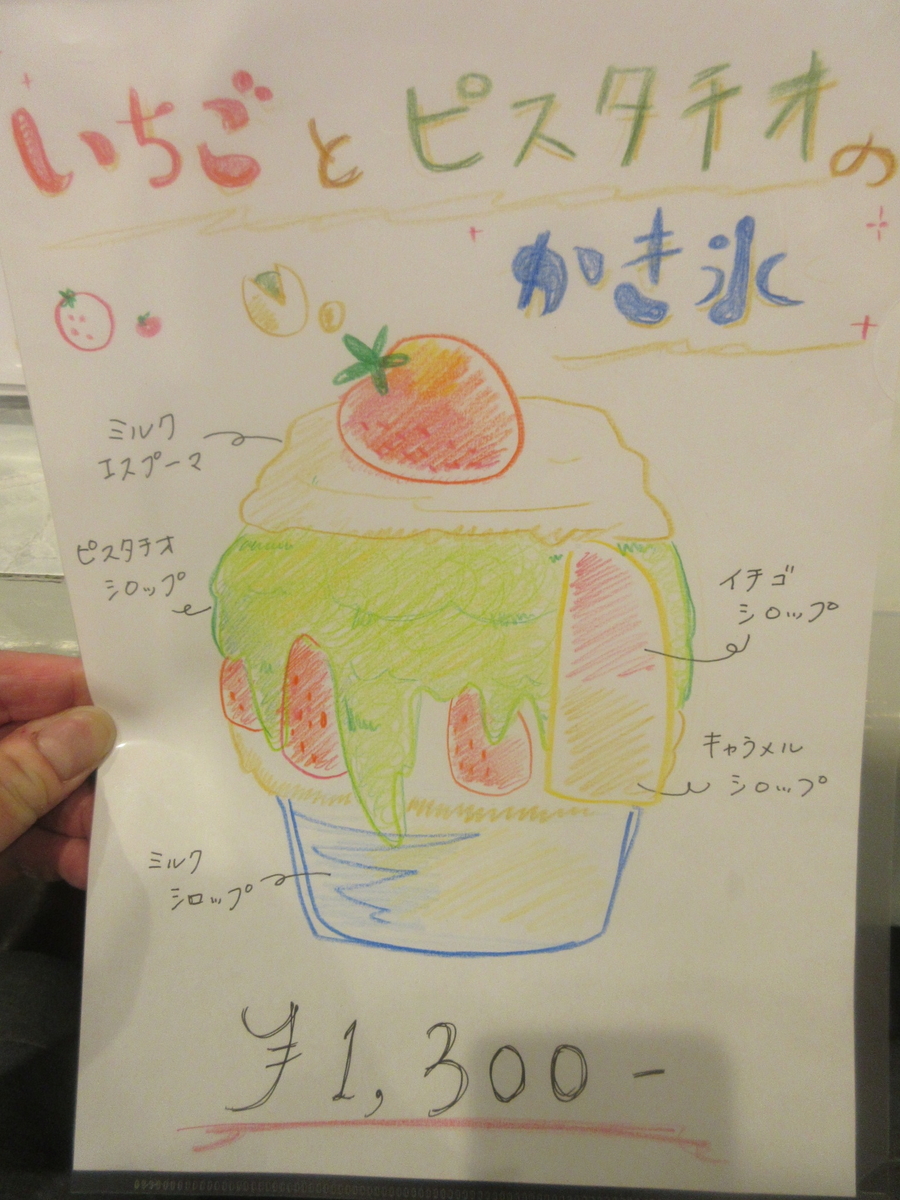 いちごとピスタチオの
かき氷
ミルク
エスプーマ
ピスタチオ
シロップ
イチゴ
シロップ
キャラメル
シロップ
ミルク
シロップ
¥1,300-